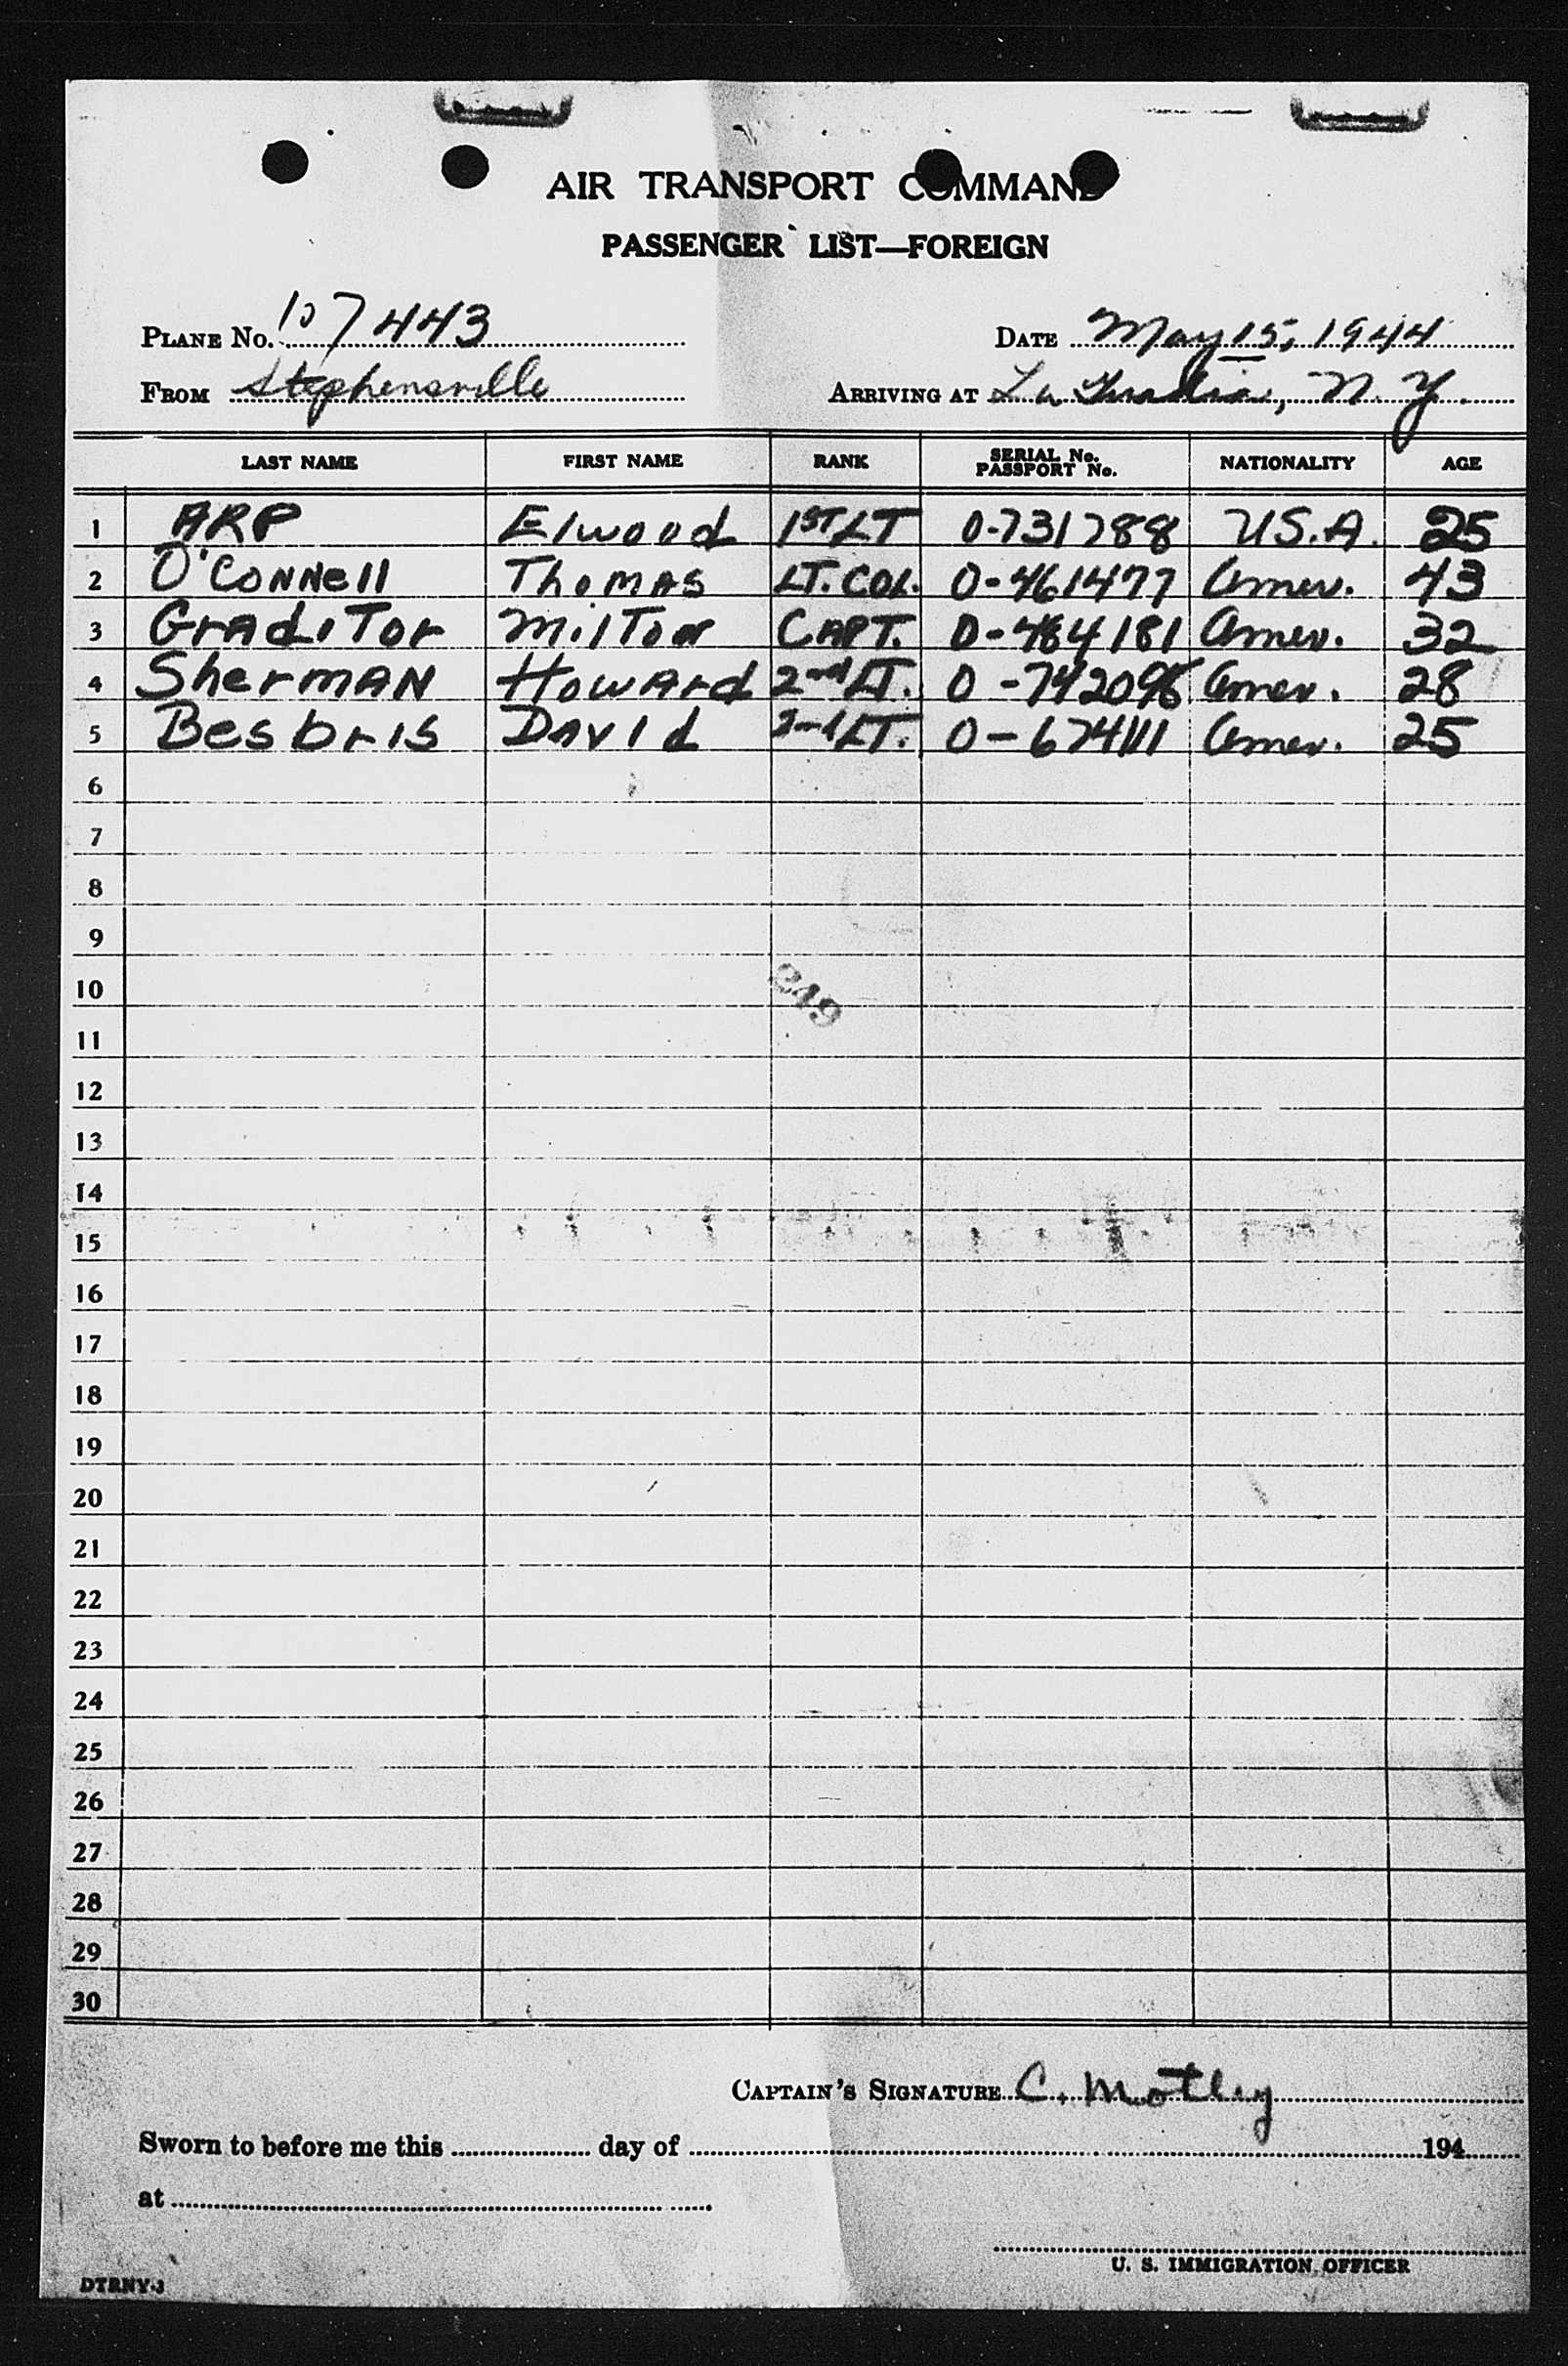 AIR TRANSPORT COMMAND
PASSENGER LIST—FOREIGN
PLANE No. 107443 DATE May 15, 1944
FROM Stephensville ARRIVING AT La Guardia, N.Y.
LAST NAME FIRST NAME RANK SERIAL No. PASSPORT No. NATIONALITY AGE
1 ARP Elwood 1ST LT 0-731788 U.S.A. 25
2 O'CONNell ThoMAS LT. COL. 0-461477 Amer. 43
3 GrAdiTor MilTon CAPT. 0-484181 Amer. 32
4 SherMAN HowArd 2nd LT. 0-742098 Amer. 28
5 Besbris DAvid 2nd LT. 0-674111 Amer. 25
6
7
8
9
10
249
11
12
13
14
15
16
17
18
19
20
21
22
23
24
25
26
27
28
29
30
CAPTAIN'S SIGNATURE C. Motley
Sworn to before me this day of 194
at
U. S. IMMIGRATION OFFICER
DTRNY-3